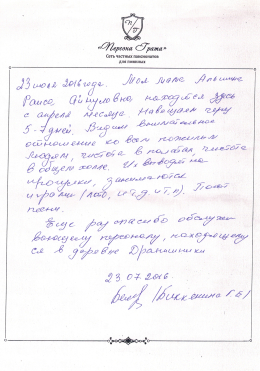 «Персона Грата»
Сеть частных пансионатов
для пожилых
23 июля 2016 года. Моя мама Альшина
Раиса находится здесь
с апреля месяца. Навещаем через
5-7 дней. Видим внимательное
отношение ко всем пожилым
людям, чистота в палатах, чистота
в общем холле. Их выводят на
прогулки, занимаются
играми (лото, и т.д. и т.п). Поют
песни.
Еще раз спасибо обслужи
вающему персоналу, находящему
ся в деревне Дранишники
23.07.2016.